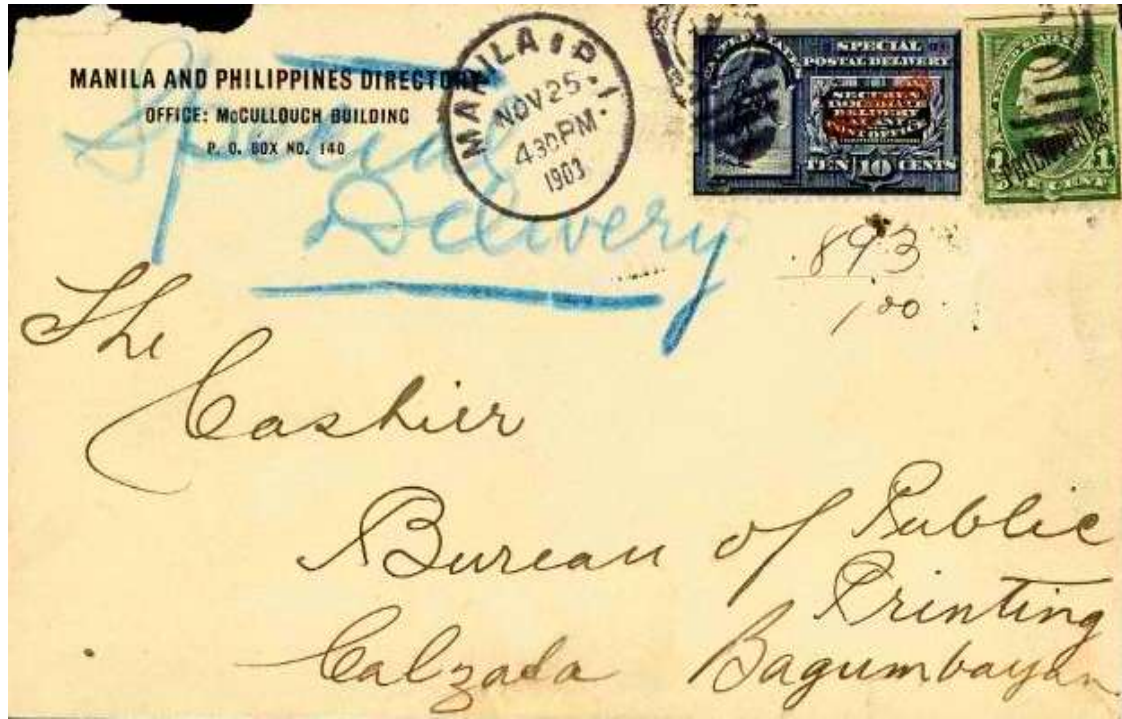 MANILA AND PHILIPPINES DIRECTORY
OFFICE: McCULLOUGH BUILDING
P. O. BOX NO. 140
Special
Delivery
MANILA P. I.
NOV 25
430PM
1903
SPECIAL
POSTAL DELIVERY
SECURES
IMMEDIATE
DELIVERY
TEN 10 CENTS
PHILIPPINES
1 1
893
1 00
The
Cashier
Bureau of Public
Printing
Calzada Bagumbayan